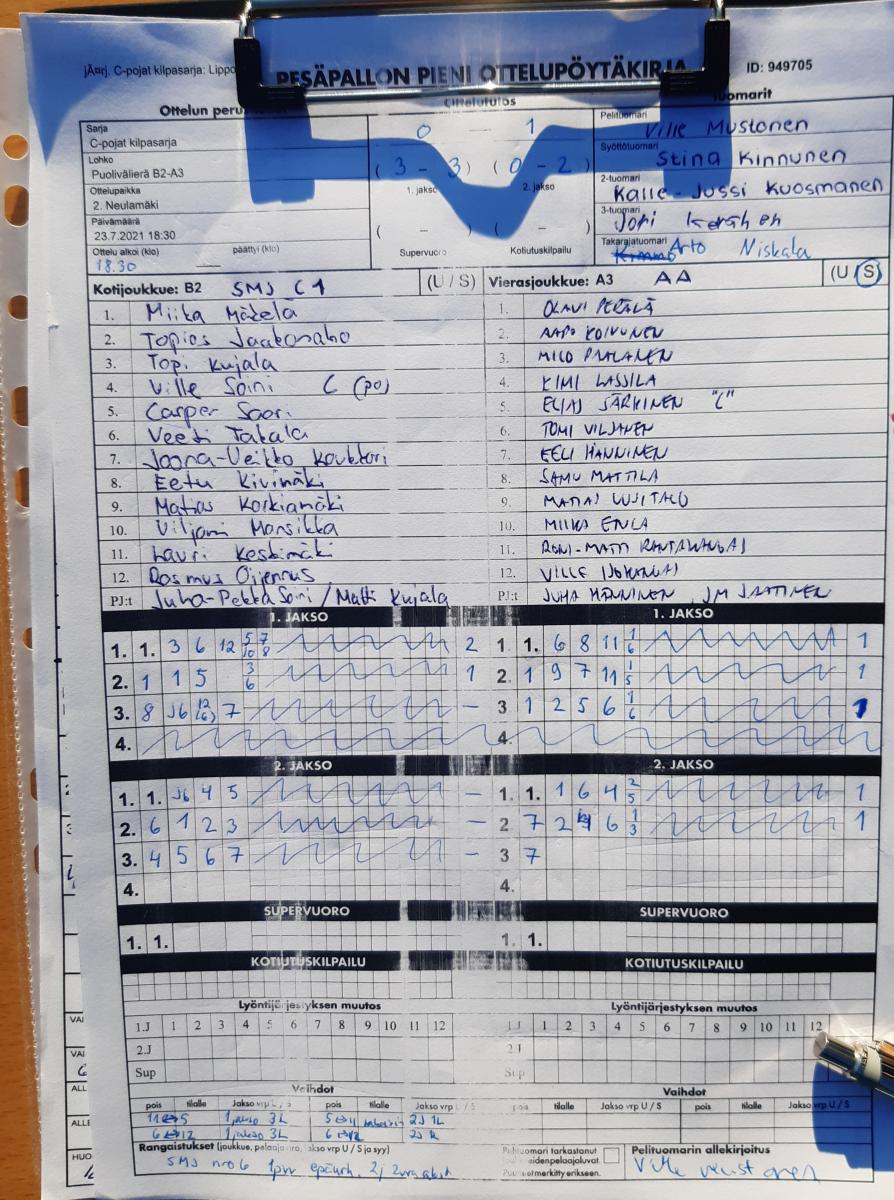 jÃ¤rj. C-pojat kilpasarja: Lippo
PESÄPALLON PIENI OTTELUPÖYTÄKIRJA
ID: 949705
Ottelun peru
Ottelutulos
uomarit
Sarja
C-pojat kilpasarja
0 — 1
Pelituomari
Ville Mustonen
Lohko
Puolivälierä B2-A3
( 3 - 3 ) ( 0 - 2 )
1. jakso 2. jakso
Syöttötuomari
Stina Kinnunen
Ottelupaikka
2. Neulamäki
2-tuomari
Kalle-Jussi Kuosmanen
Päivämäärä
23.7.2021 18:30
( - ) ( - )
Supervuoro Kotiutuskilpailu
3-tuomari
Ottelu alkoi (klo) päättyi (klo)
18.30
Takarajatuomari
Arto Niskala
Kotijoukkue: B2 SMJ C1 (U / S)
Vierasjoukkue: A3 AA (U / S)
1. Miika Mäkelä
1. OLAVI PERÄLÄ
2. Topias Jaakonaho
2. AAPO KOIVUNEN
3. Topi Kujala
3. MICO PAALANEN
4. Ville Soini C (po)
4. KIMI LASSILA
5. Casper Saari
5. ELIAS SÄRKINEN "C"
6. Veeti Takala
6. TOMI VILJANEN
7. Joona-Veikko
7. EELI HÄNNINEN
8. Eetu Kivimäki
8. SAMU MATTILA
9. Matias Korkiamäki
9. MATIAS UUSITALO
10. Viljami Mansikka
10. MIIKA
11. Lauri Keskimäki
11. RONI-MATTI RANTAKANGAS
12. Rasmus Oijennus
12. VILLE
PJ:t Juha-Pekka Soini / Matti Kujala
PJ:t JUHA HÄNNINEN JM JAATINEN
1. JAKSO
1. JAKSO
1. 1. 3 6 12 5/10 7/8 2
1 1. 6 8 11 1/6 1
2. 1 1 5 3/6 1
2. 1 9 7 11 1/5 1
3. 8 J6 12(6) 7 –
3 1 2 5 6 1/6 1
4.
4.
2. JAKSO
2. JAKSO
1. 1. J6 4 5 –
1. 1. 1 6 4 2/5 1
2. 6 1 2 3 –
2 7 2 4 6 1/3 1
3. 4 5 6 7 –
3 7
4.
4.
SUPERVUORO
SUPERVUORO
1. 1.
1. 1.
KOTIUTUSKILPAILU
KOTIUTUSKILPAILU
Lyöntijärjestyksen muutos
Lyöntijärjestyksen muutos
1.J 1 2 3 4 5 6 7 8 9 10 11 12
1 J 1 2 3 4 5 6 7 8 9 10 11 12
2.J
2 J
Sup
Sup
Vaihdot
Vaihdot
pois tilalle Jakso vrp U / S pois tilalle Jakso vrp U / S
pois tilalle Jakso vrp U / S pois tilalle Jakso vrp U / S
11↔5 1 jakso 3L 5↔11 2J 1L
6↔12 1 jakso 3L 6↔12
Rangaistukset (joukkue, pelaaja nro, jakso vrp U / S ja syy)
SMJ nro 6 1 prv
Pelituomari tarkastanut
eidenpelaajaluvat.
Puu ot merkitty erikseen.
Pelituomarin allekirjoitus
Ville Mustonen